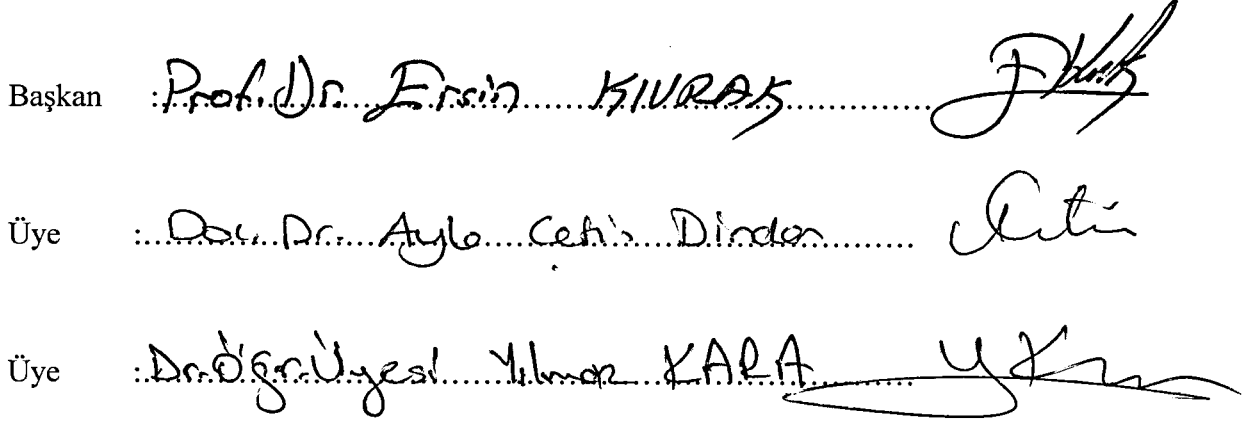 Başkan : Prof. Dr. Ersin KIVRAK
Üye : Doç. Dr. Ayla Çetin Dindar
Üye : Dr. Öğr. Üyesi Yılmaz KARA